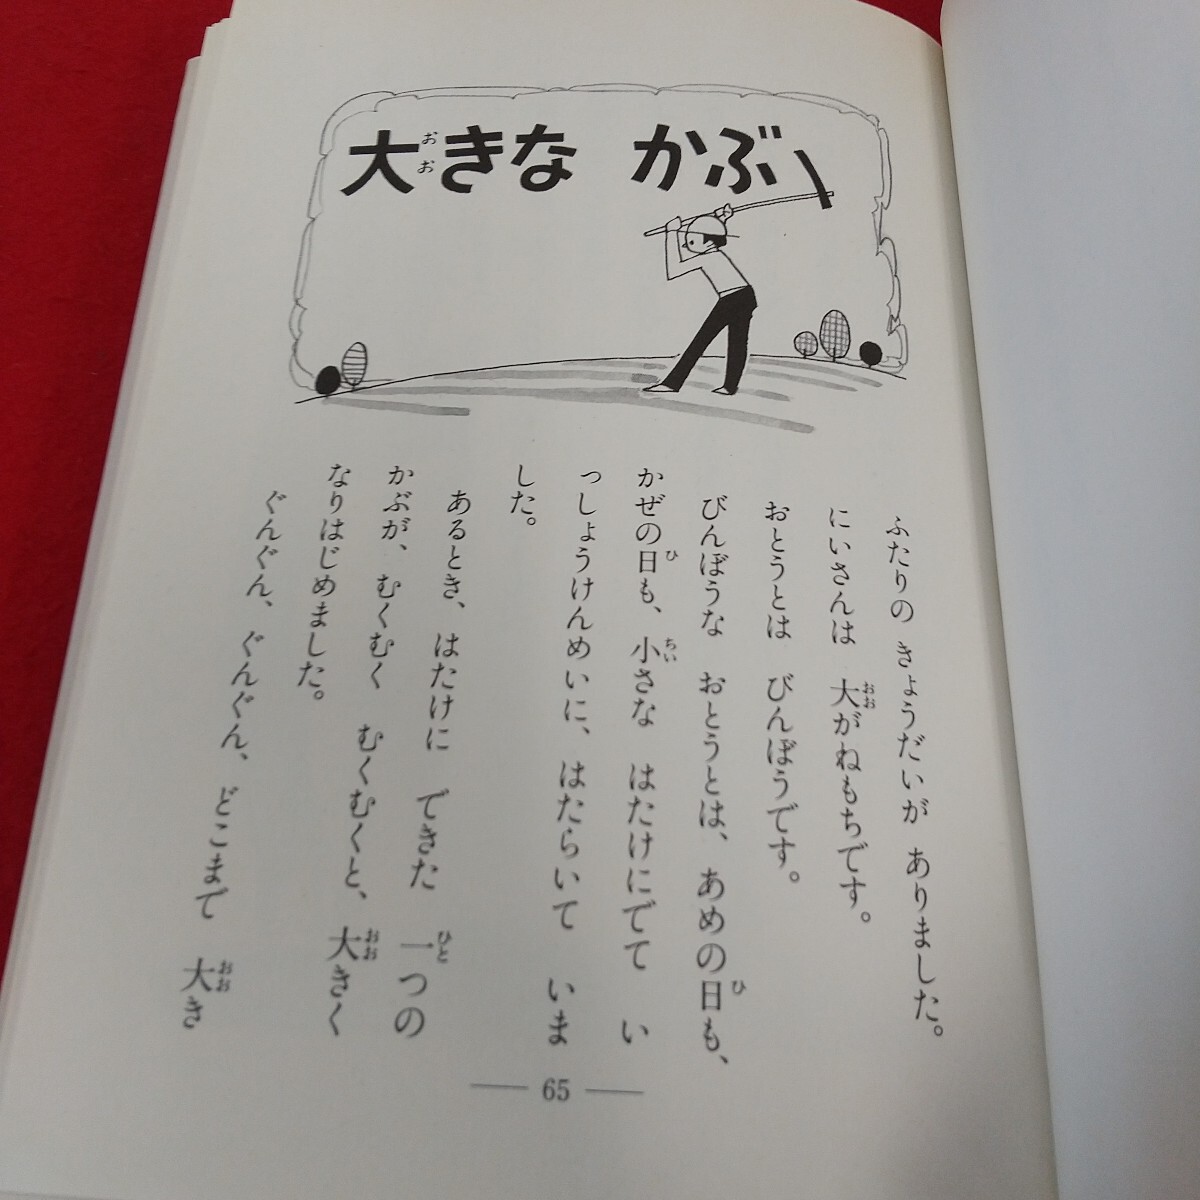 大きな かぶ
おお
ふたりの きょうだいが ありました。
にいさんは 大がねもちです。
おお
おとうとは びんぼうです。
びんぼうな おとうとは、あめの日も、
ひ
かぜの日も、小さな はたけにでて い
ひ ちい
っしょうけんめいに、はたらいて いま
した。
あるとき、はたけに できた 一つの
ひと
かぶが、むくむく むくむくと、大きく
おお
なりはじめました。
ぐんぐん、ぐんぐん、どこまで 大き
おお
65